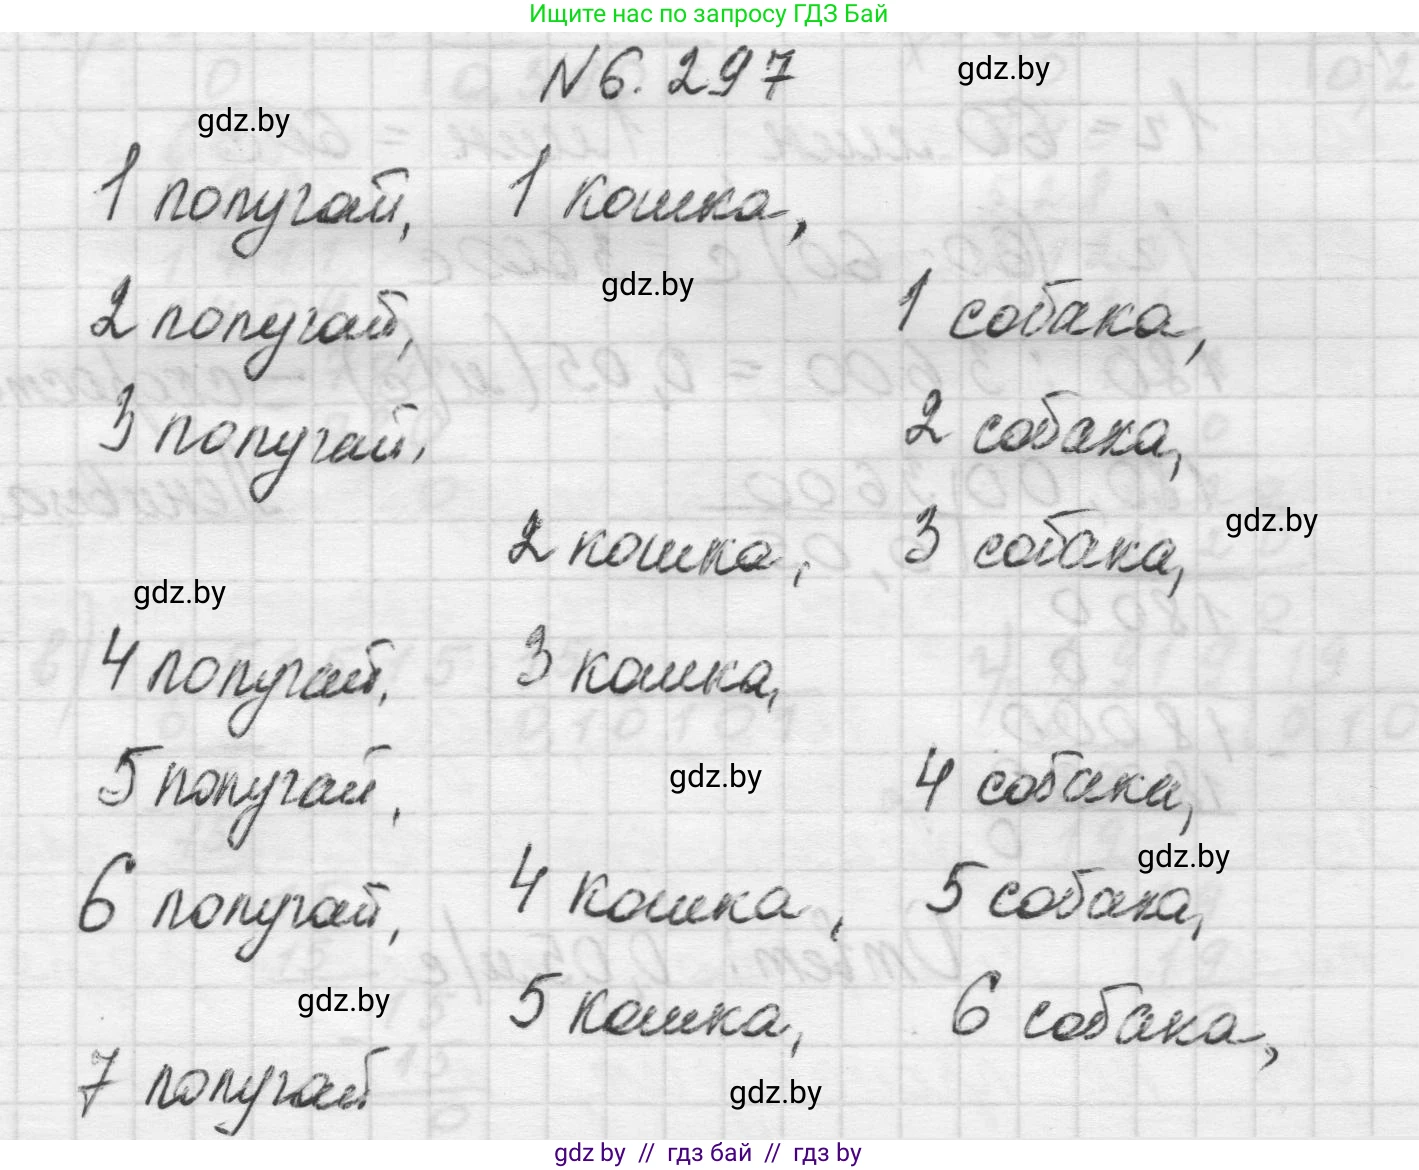 Ищите нас по запросу ГДЗ Бай
№6.297
gdz.by
gdz.by
1 попугай, 1 кошка,
gdz.by
2 попугай, 1 собака,
3 попугай, 2 собака,
gdz.by
2 кошка, 3 собака,
gdz.by
4 попугай, 3 кошка,
gdz.by
5 попугай, 4 собака,
gdz.by
6 попугай, 4 кошка, 5 собака,
gdz.by
5 кошка, 6 собака,
7 попугай
gdz.by
gdz.by // гдз бай // гдз by